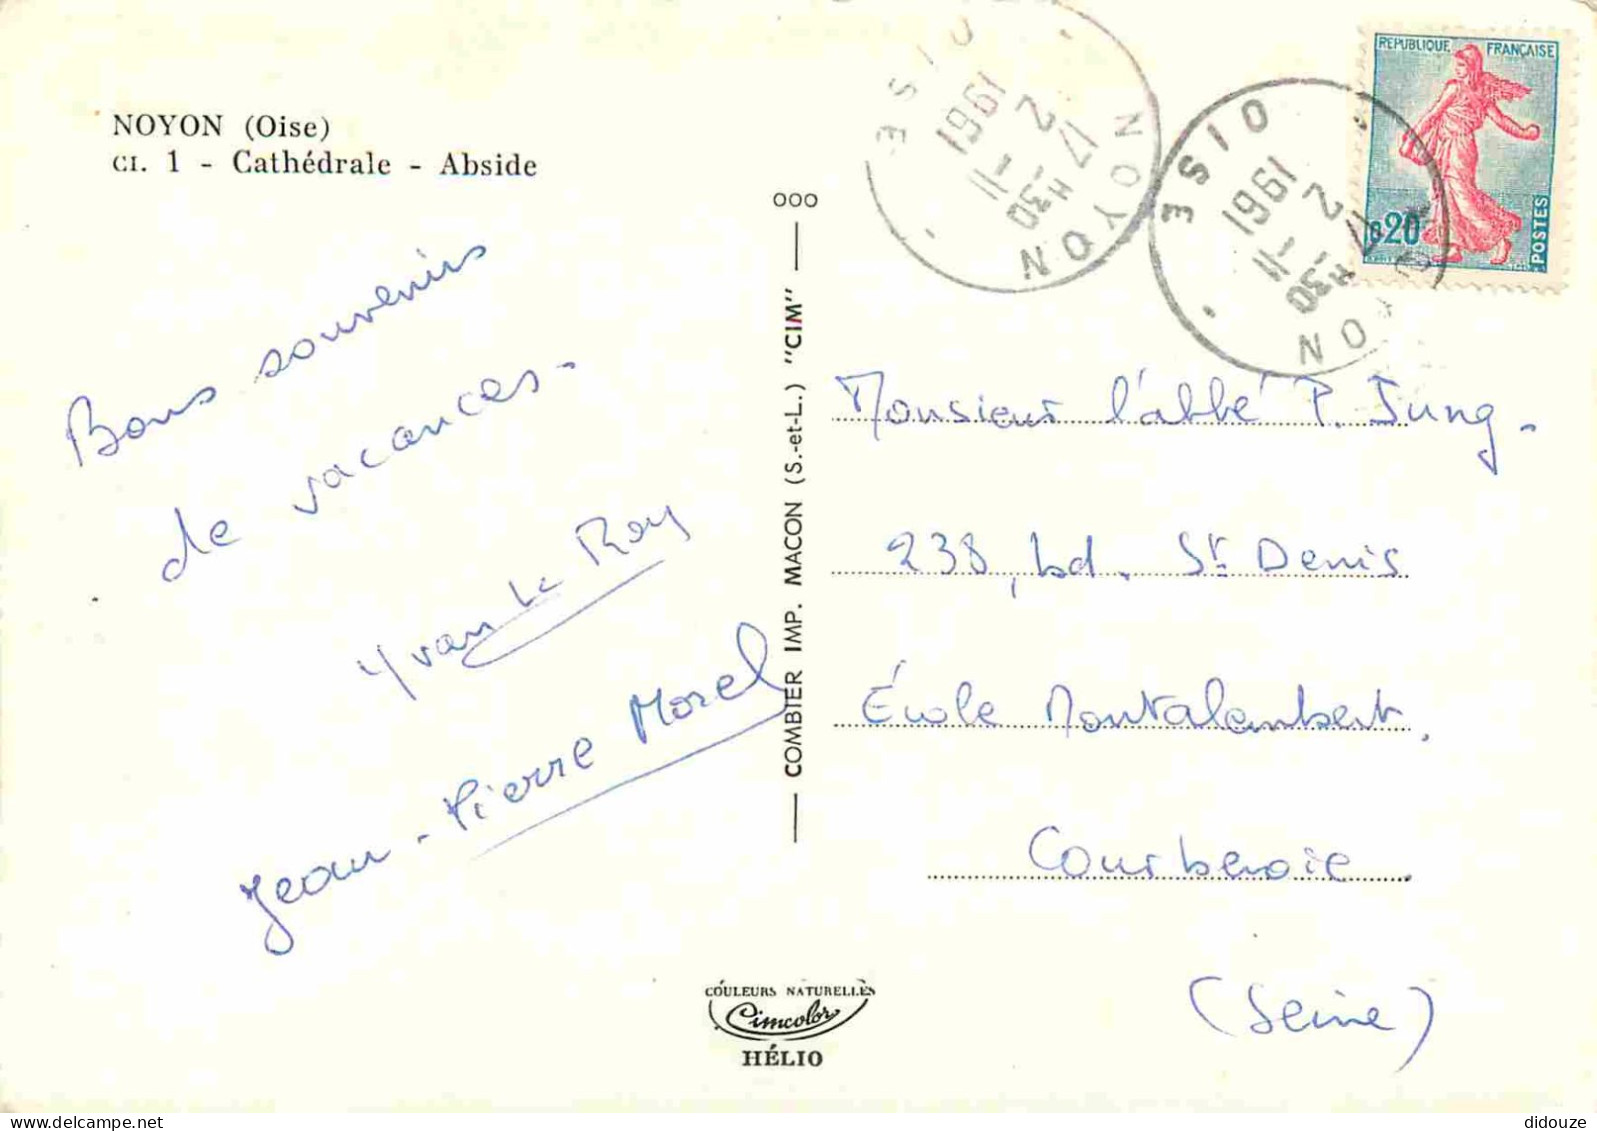 NOYON (Oise)
CI. 1 - Cathédrale - Abside
Bons souvenirs
de vacances.
Yvan Le Roy
Jean-Pierre Morel
OOO
COMBIER IMP. MACON (S.-et-L.) "CIM"
COULEURS NATURELLES
Cimcolor
HÉLIO
NOYON
OISE
17 H30
2
1961
NOYON
OISE
H30
2
1961
REPUBLIQUE FRANÇAISE
0,20
POSTES
Monsieur l'abbé P. Jung.
238, bd. St Denis
École Montalembert.
Courbevoie.
(Seine)
delcampe.net
didouze